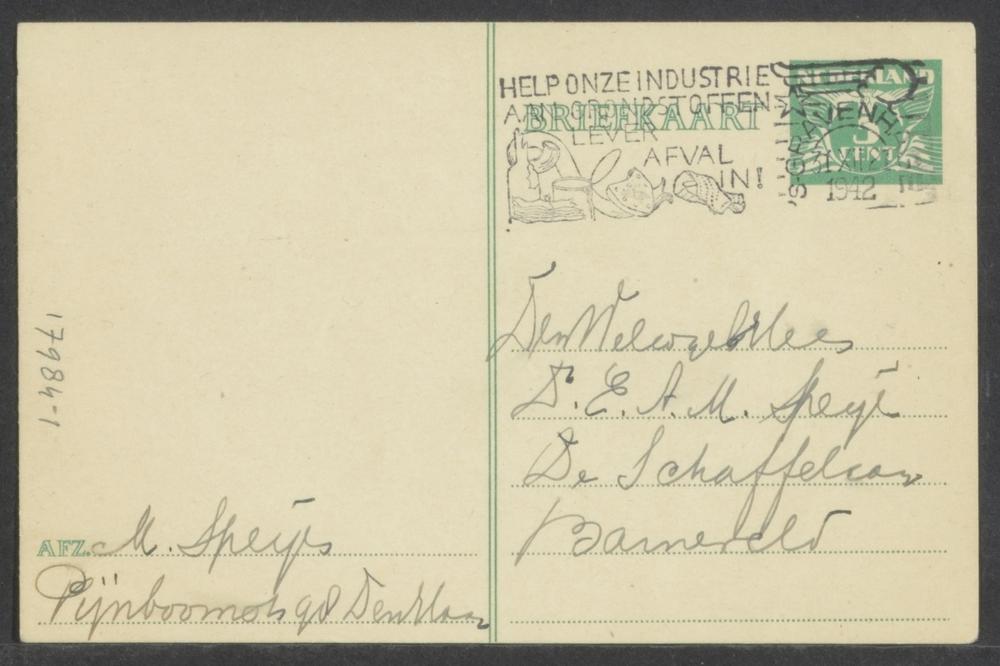 HELP ONZE INDUSTRIE
AAN GRONDSTOFFEN
LEVER
AFVAL
IN!
BRIEFKAART
NEDERLAND
CENT
'S-GRAVENHAGE
31 XII
1942
Den Weledelgeb. Heer
Dr. E. A. M. Speyer
De Schaffelaar
Barneveld
17984-1
AFZ. M. Speyer
Pijnboomstr 98 Den Haag